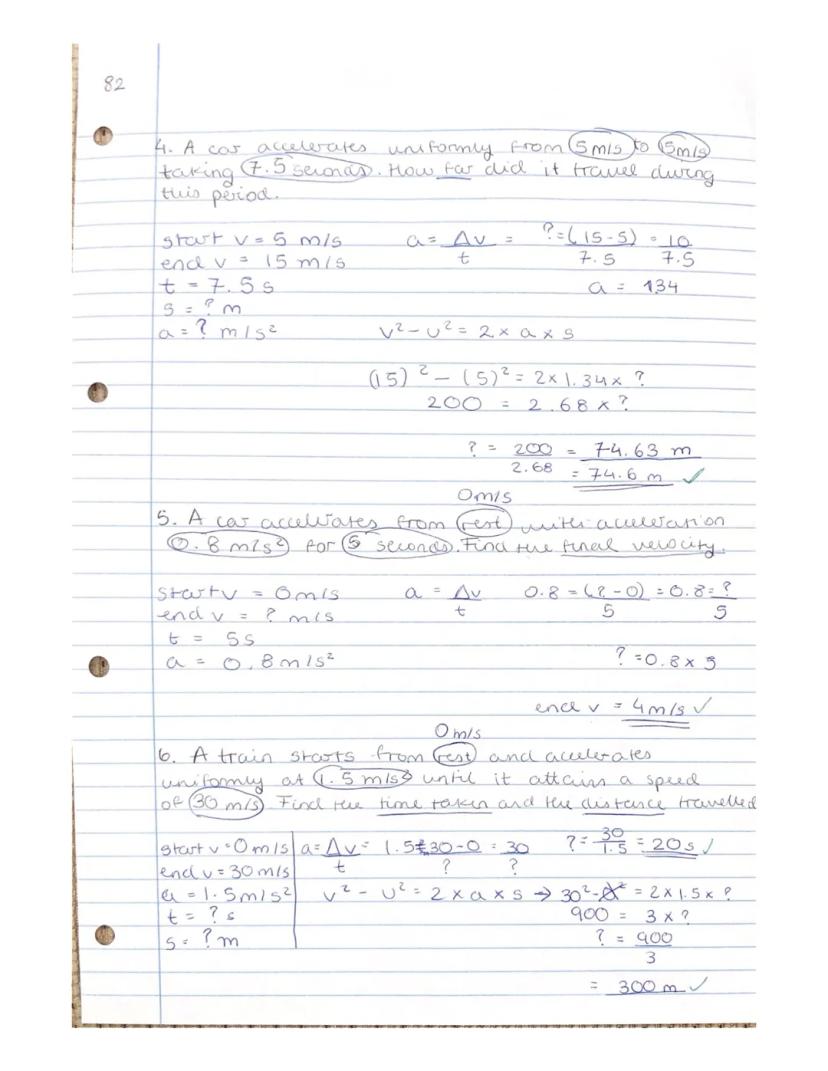 82
4. A car accelerates uniformly from 5 m/s to 15m/s
taking 7.5 seconds. How far did it travel during
this period.
start v = 5 m/s a = Δv/t = ?=(15-5)/7.5 = 10/7.5
end v = 15 m/s
t = 7.5 s a = 1.34
s = ? m
a = ? m/s² v² - u² = 2 x a x s
(15)² - (5)² = 2 x 1.34 x ?
200 = 2.68 x ?
? = 200/2.68 = 74.63 m
= 74.6 m ✓
0m/s
5. A car accelerates from rest with acceleration
0.8 m/s² for 5 seconds. Find the final velocity.
start v = 0m/s a = Δv/t 0.8 = (?-0)/5 = 0.8 = ?/5
end v = ? m/s
t = 5s
a = 0,8 m/s² ? = 0.8 x 5
end v = 4m/s ✓
0m/s
6. A train starts from rest and accelerates
uniformly at 1.5 m/s² until it attains a speed
of 30 m/s. Find the time taken and the distance travelled
start v = 0m/s a = Δv/t = 1.5 = 30-0/? = 30/? ? = 30/1.5 = 20s ✓
end v = 30 m/s
a = 1.5m/s² v² - u² = 2 x a x s → 30² - 0² = 2 x 1.5 x ?
t = ? s 900 = 3 x ?
s = ? m ? = 900/3
= 300 m ✓